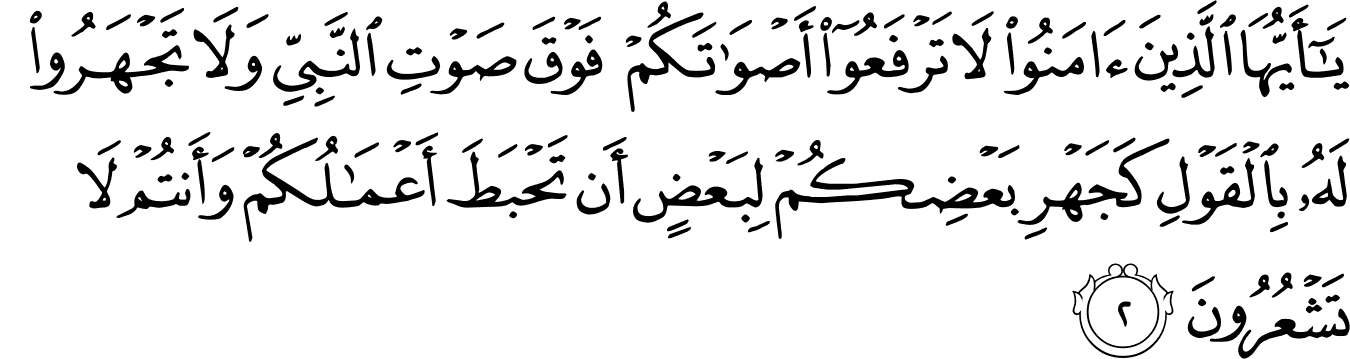 يَـٰٓأَيُّهَا ٱلَّذِينَ ءَامَنُوا۟ لَا تَرْفَعُوٓا۟ أَصْوَٰتَكُمْ فَوْقَ صَوْتِ ٱلنَّبِىِّ وَلَا تَجْهَرُوا۟
لَهُۥ بِٱلْقَوْلِ كَجَهْرِ بَعْضِكُمْ لِبَعْضٍ أَن تَحْبَطَ أَعْمَـٰلُكُمْ وَأَنتُمْ لَا
تَشْعُرُونَ ٢